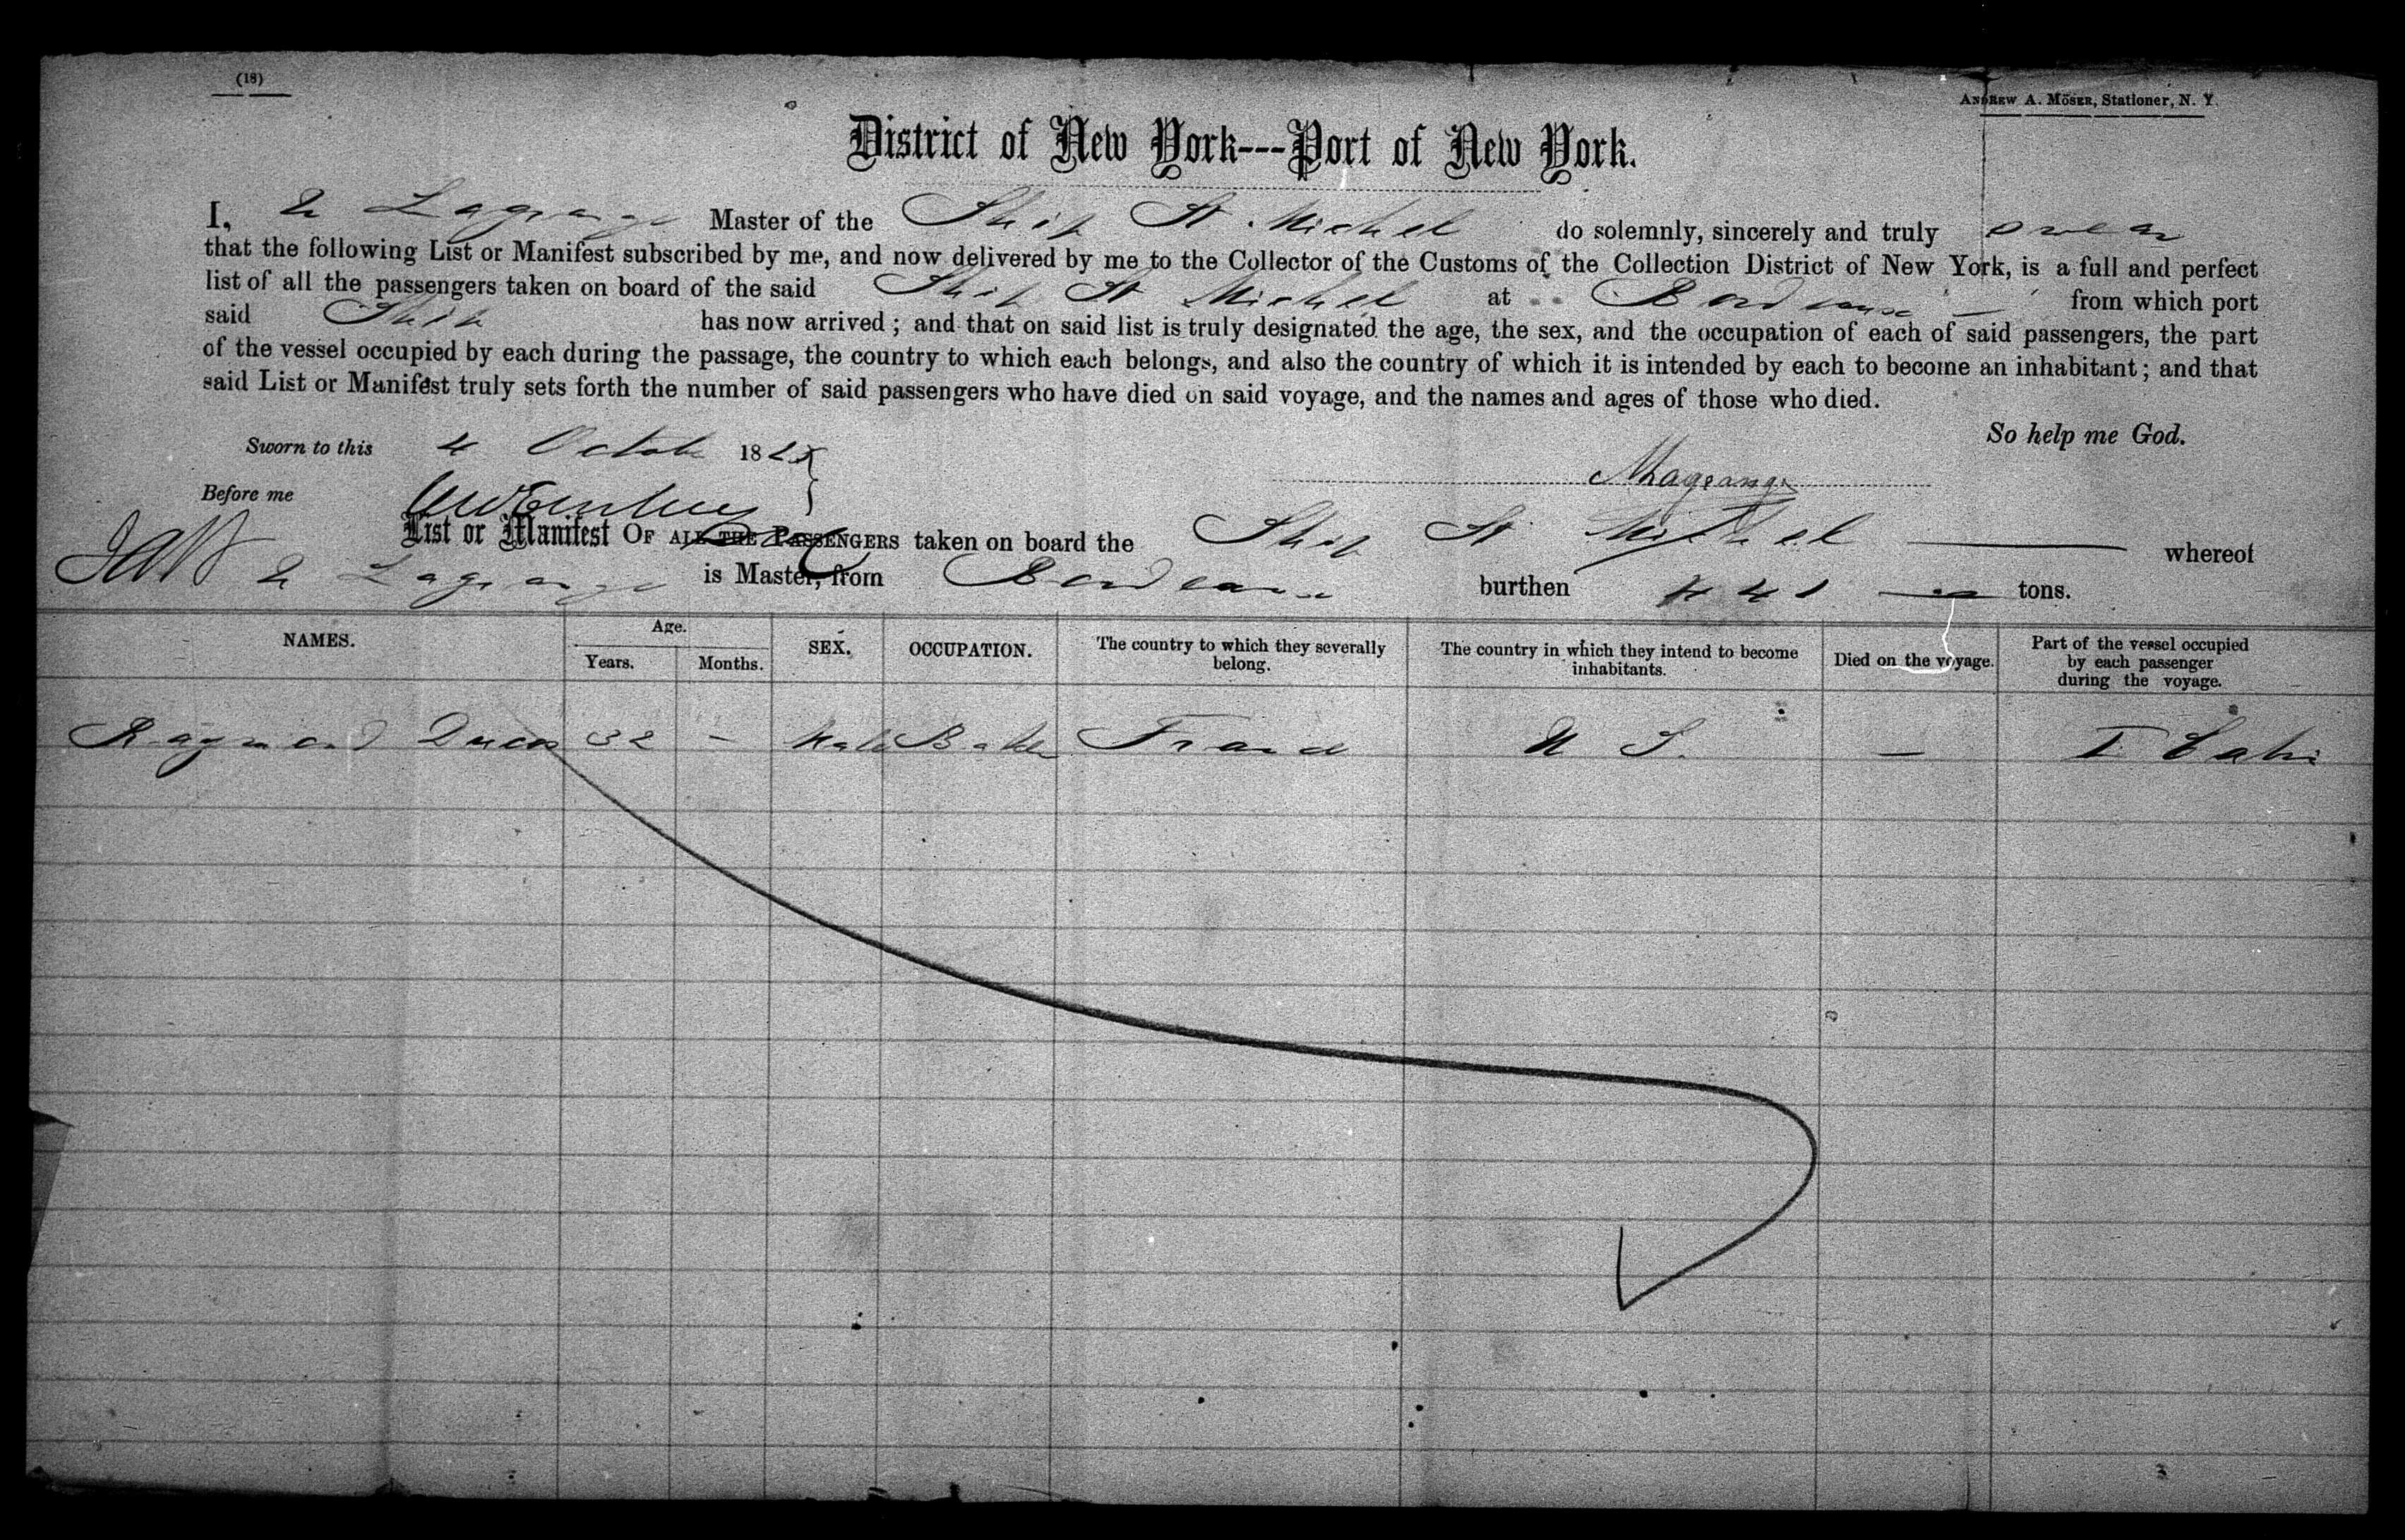 (18)
ANDREW A. MÖSER, Stationer, N. Y.
District of New York---Port of New York.
I, Lagrange Master of the Ship St Michel do solemnly, sincerely and truly swear
that the following List or Manifest subscribed by me, and now delivered by me to the Collector of the Customs of the Collection District of New York, is a full and perfect
list of all the passengers taken on board of the said Ship St Michel at Bordeaux from which port
said Ship has now arrived; and that on said list is truly designated the age, the sex, and the occupation of each of said passengers, the part
of the vessel occupied by each during the passage, the country to which each belongs, and also the country of which it is intended by each to become an inhabitant; and that
said List or Manifest truly sets forth the number of said passengers who have died on said voyage, and the names and ages of those who died.
So help me God.
Sworn to this 4 October 18
Before me
List or Manifest OF ALL THE PASSENGERS taken on board the Ship St Michel whereof
Lagrange is Master, from Bordeaux burthen 441 tons.
NAMES. Age. Years. Months. SEX. OCCUPATION. The country to which they severally belong. The country in which they intend to become inhabitants. Died on the voyage. Part of the vessel occupied by each passenger during the voyage.
Raymond Ducos 32 - Male Baker France U S. - I Cabin